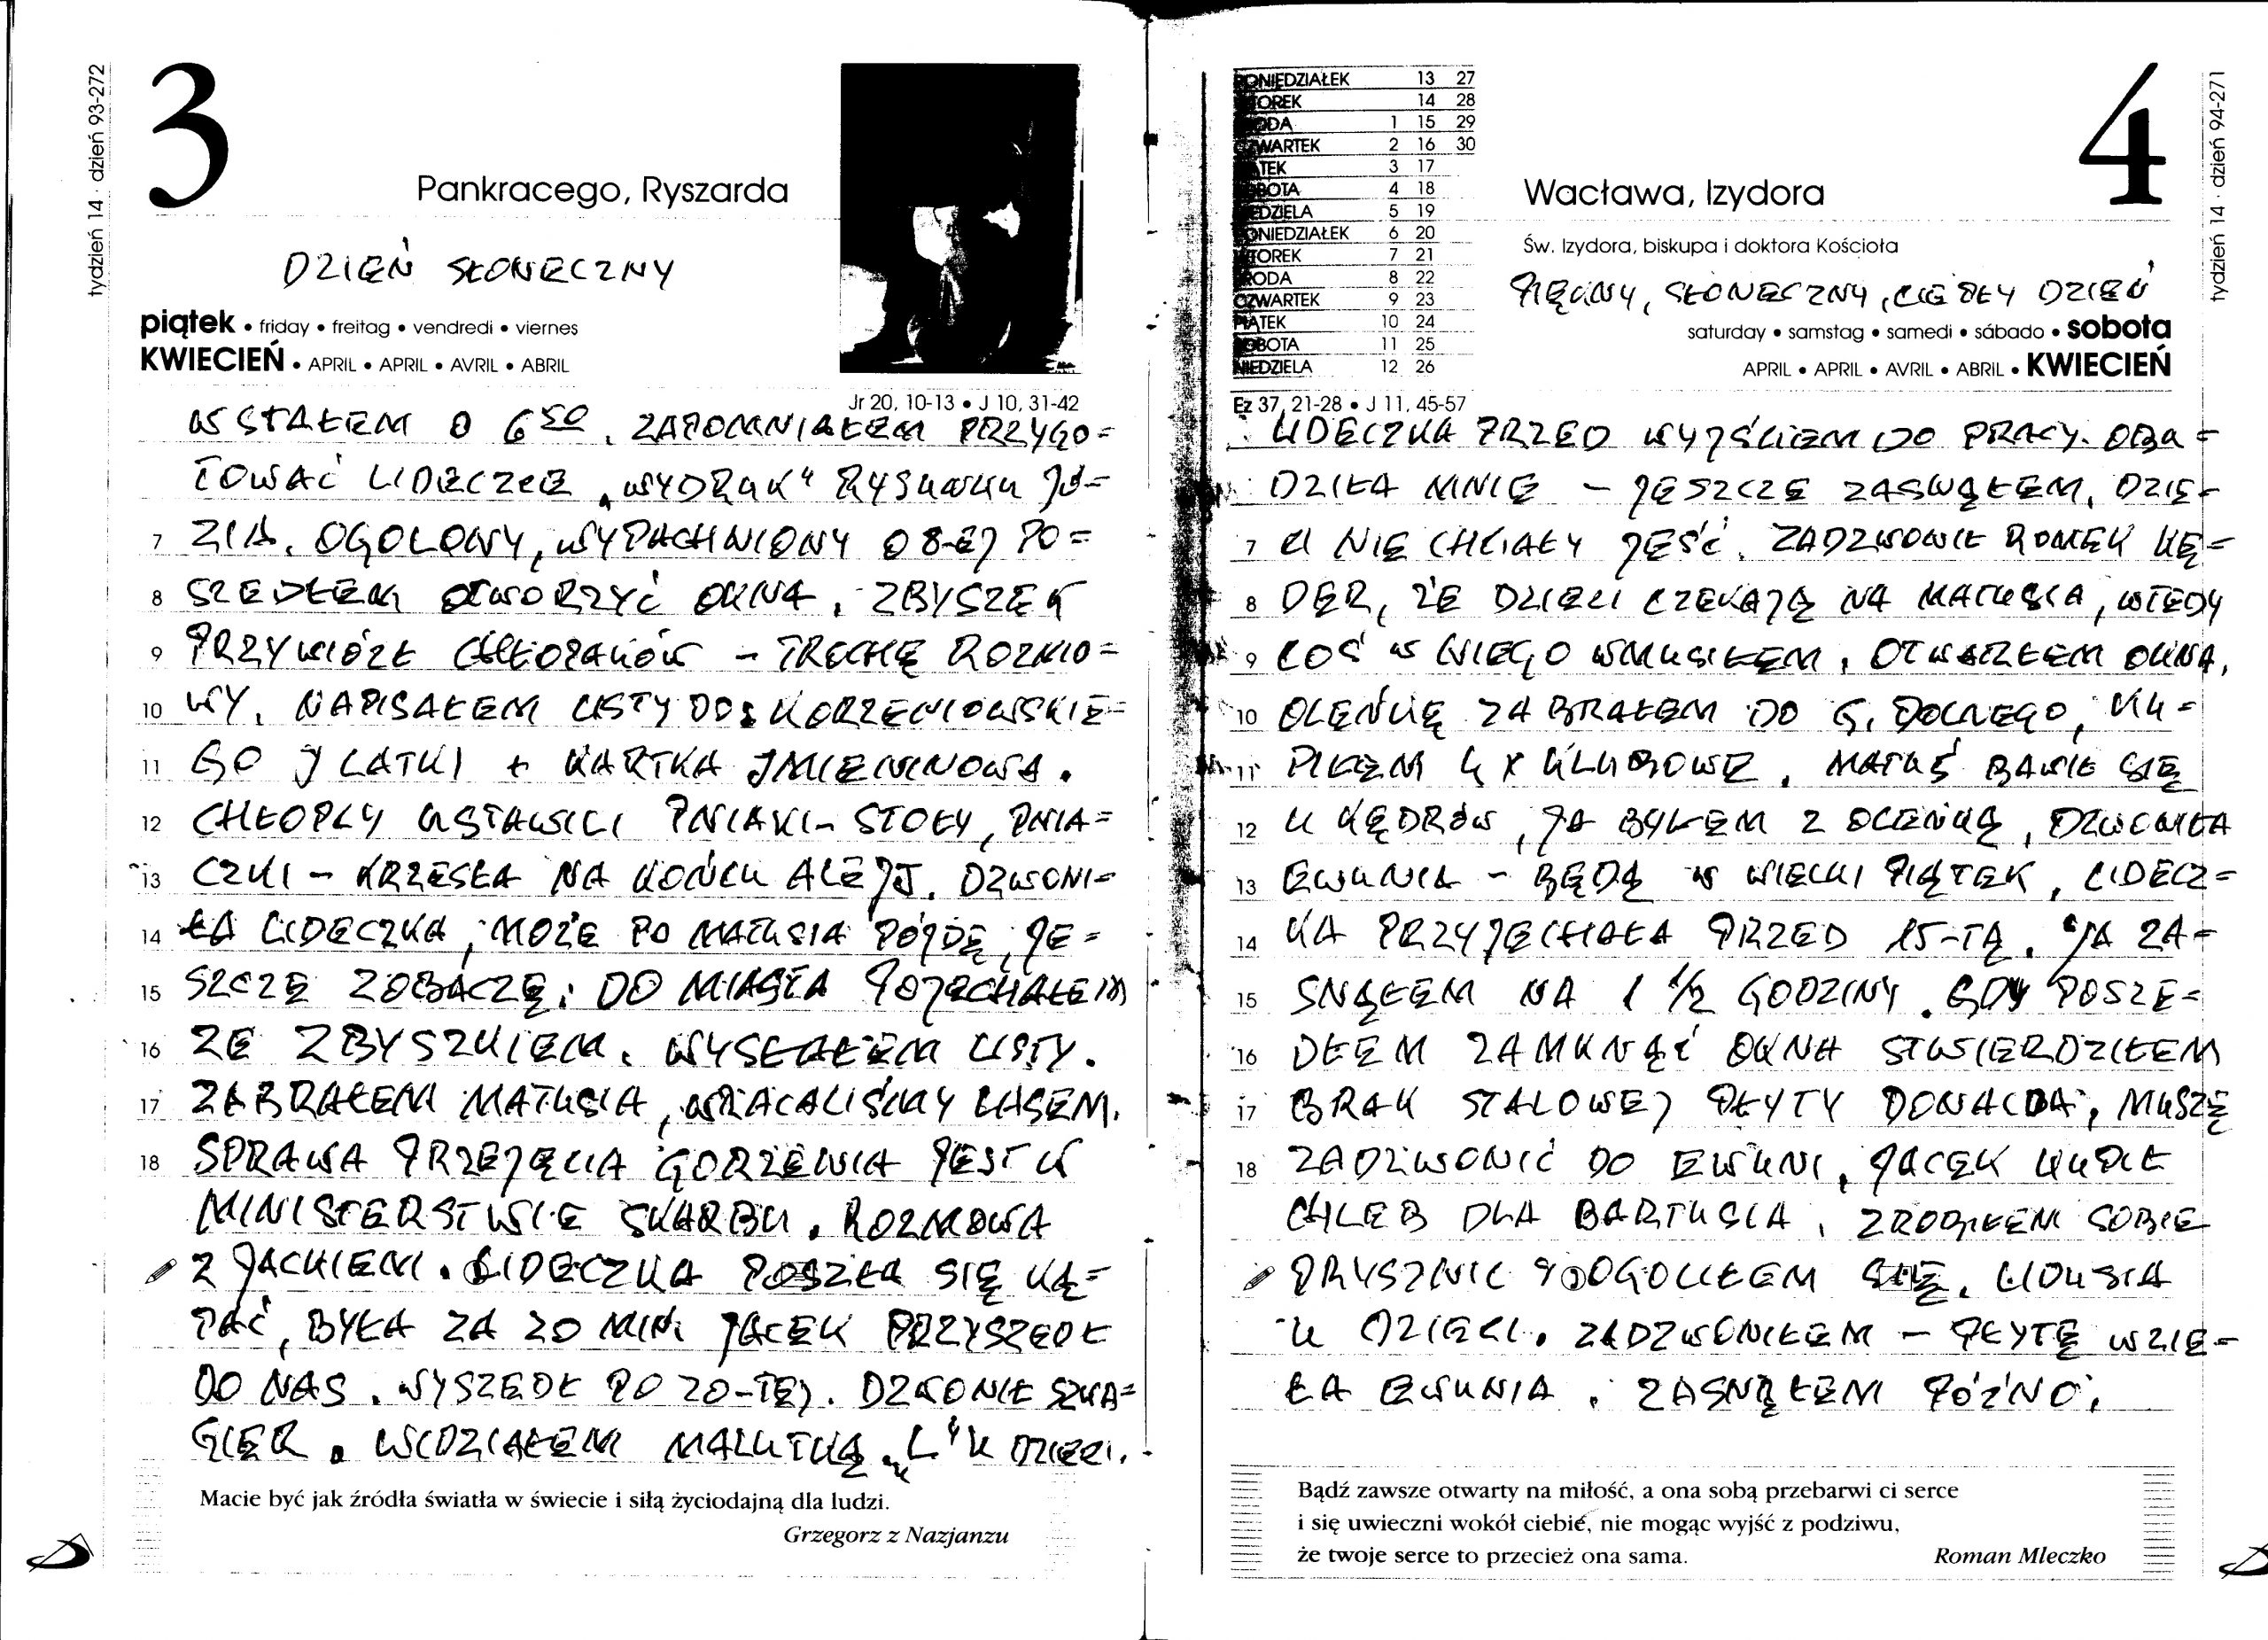 tydzień 14 · dzień 93-272
3
Pankracego, Ryszarda
DZIEŃ SŁONECZNY
piątek • friday • freitag • vendredi • viernes
KWIECIEŃ • APRIL • APRIL • AVRIL • ABRIL
Jr 20, 10-13 • J 10, 31-42
WSTAŁEM O 6 50. ZAPOMNIAŁEM PRZYGO=
TOWAĆ LIDECZCE „WYDRUK" RYSUNKU JÓ=
7 ZIA. OGOLONY, WYPACHNIONY O 8-EJ PO=
8 SZEDŁEM OTWORZYĆ OKNA. ZBYSZEK
9 PRZYWIÓZŁ CHŁOPAKÓW – TROCHĘ ROZMO=
10 WY. NAPISAŁEM LISTY DO: KORZENIOWSKIE=
11 GO J LATKI + KARTKA JMIENINOWA.
12 CHŁOPCY USTAWILI PNIAKI – STOŁY, PNIA=
13 CZKI – KRZESŁA NA KOŃCU ALEJJ. DZWONI=
14 ŁA LIDECZKA, MOŻE PO MATUSIA PÓJDĘ, JE=
15 SZCZE ZOBACZĘ. DO MIASTA POJECHAŁEM
16 ZE ZBYSZKIEM. WYSŁAŁEM LISTY.
17 ZABRAŁEM MATUSIA, WRACALIŚMY LASEM.
18 SPRAWA PRZEJĘCIA GORZENIA JEST W
MINISTERSTWIE SKARBU. ROZMOWA
Z JACKIEM. LIDECZKA POSZŁA SIĘ KĄ=
PAĆ, BYŁA ZA 20 MIN. JACEK PRZYSZEDŁ
DO NAS. WYSZEDŁ PO 20-TEJ. DZWONIŁ SZWA=
GIER. WIDZIAŁEM MALUTKĄ „L" U DZIECI.
Macie być jak źródła światła w świecie i siłą życiodajną dla ludzi.
Grzegorz z Nazjanzu
PONIEDZIAŁEK 13 27
WTOREK 14 28
ŚRODA 1 15 29
CZWARTEK 2 16 30
PIĄTEK 3 17
SOBOTA 4 18
NIEDZIELA 5 19
PONIEDZIAŁEK 6 20
WTOREK 7 21
ŚRODA 8 22
CZWARTEK 9 23
PIĄTEK 10 24
SOBOTA 11 25
NIEDZIELA 12 26
Ez 37, 21-28 • J 11, 45-57
4
tydzień 14 · dzień 94-271
Wacława, Izydora
Św. Izydora, biskupa i doktora Kościoła
PIĘKNY, SŁONECZNY, CIEPŁY DZIEŃ
saturday • samstag • samedi • sábado • sobota
APRIL • APRIL • AVRIL • ABRIL • KWIECIEŃ
LIDECZKA PRZED WYJŚCIEM DO PRACY OBU=
DZIŁA MNIE – JESZCZE ZASNĄŁEM. DZIE=
7 CI NIE CHCIAŁY JEŚĆ. ZADZWONIŁ ROMEK KĘ=
8 DER, ŻE DZIECI CZEKAJĄ NA MATUSIA, WTEDY
9 COŚ W NIEGO WMUSIŁEM. OTWARŁEM OKNA,
10 OLEŃKĘ ZABRAŁEM DO G. DOLNEGO, KU=
11 PIŁEM 4 X KLUBOWE. MATUŚ BAWIŁ SIĘ
12 U KĘDRÓW, JA BYŁEM Z OLEŃKĄ, DZWONIŁA
13 EWUNIA – BĘDĄ W WIELKI PIĄTEK. LIDECZ=
14 KA PRZYJECHAŁA PRZED 15-TĄ. JA ZA=
15 SNĄŁEM NA 1 1/2 GODZINY. GDY POSZE=
16 DŁEM ZAMKNĄĆ OKNA STWIERDZIŁEM
17 BRAK STALOWEJ PŁYTY DONALDA, MUSZĘ
18 ZADZWONIĆ DO EWUNI. JACEK KUPIŁ
CHLEB DLA BARTUSIA. ZROBIŁEM SOBIE
PRYSZNIC J OGOLIŁEM SIĘ. LIDUSIA
U DZIECI. ZADZWONIŁEM – PŁYTĘ WZIĘ=
ŁA EWUNIA. ZASNĄŁEM PÓŹNO.
Bądź zawsze otwarty na miłość, a ona sobą przebarwi ci serce
i się uwieczni wokół ciebie, nie mogąc wyjść z podziwu,
że twoje serce to przecież ona sama.
Roman Mleczko